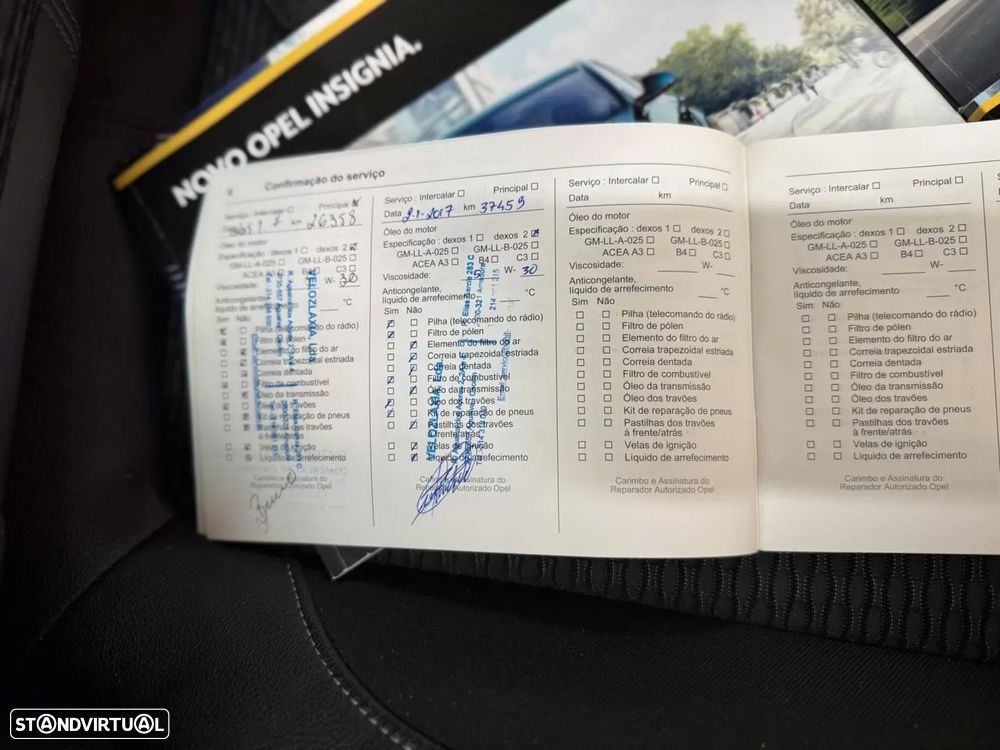 NOVO OPEL INSIGNIA.
6 Confirmação do serviço
Serviço : Intercalar Principal
km 26358
Óleo do motor
Especificação : dexos 1 dexos 2
GM-LL-A-025 GM-LL-B-025
ACEA A3 B4 C3
Viscosidade: W- 30
Anticongelante,
líquido de arrefecimento °C
Sim Não
Pilha (telecomando do rádio)
Filtro de pólen
Elemento do filtro do ar
Correia trapezoidal estriada
Correia dentada
Filtro de combustível
Óleo da transmissão
Óleo dos travões
Kit de reparação de pneus
Pastilhas dos travões
à frente/atrás
Velas de ignição
Líquido de arrefecimento
VELOZLAXIA, Lda.
Serviço : Intercalar Principal
Data 2-1-2017 km 37459
Óleo do motor
Especificação : dexos 1 dexos 2
GM-LL-A-025 GM-LL-B-025
ACEA A3 B4 C3
Viscosidade: W- 30
Anticongelante,
líquido de arrefecimento °C
Sim Não
Pilha (telecomando do rádio)
Filtro de pólen
Elemento do filtro do ar
Correia trapezoidal estriada
Correia dentada
Filtro de combustível
Óleo da transmissão
Óleo dos travões
Kit de reparação de pneus
Pastilhas dos travões
à frente/atrás
Velas de ignição
Líquido de arrefecimento
Carimbo e Assinatura do
Reparador Autorizado Opel
VELOZLAXIA, Lda.
Serviço : Intercalar Principal
Data km
Óleo do motor
Especificação : dexos 1 dexos 2
GM-LL-A-025 GM-LL-B-025
ACEA A3 B4 C3
Viscosidade: W-
Anticongelante,
líquido de arrefecimento °C
Sim Não
Pilha (telecomando do rádio)
Filtro de pólen
Elemento do filtro do ar
Correia trapezoidal estriada
Correia dentada
Filtro de combustível
Óleo da transmissão
Óleo dos travões
Kit de reparação de pneus
Pastilhas dos travões
à frente/atrás
Velas de ignição
Líquido de arrefecimento
Carimbo e Assinatura do
Reparador Autorizado Opel
Serviço : Intercalar Principal
Data km
Óleo do motor
Especificação : dexos 1 dexos 2
GM-LL-A-025 GM-LL-B-025
ACEA A3 B4 C3
Viscosidade: W-
Anticongelante,
líquido de arrefecimento °C
Sim Não
Pilha (telecomando do rádio)
Filtro de pólen
Elemento do filtro do ar
Correia trapezoidal estriada
Correia dentada
Filtro de combustível
Óleo da transmissão
Óleo dos travões
Kit de reparação de pneus
Pastilhas dos travões
à frente/atrás
Velas de ignição
Líquido de arrefecimento
Carimbo e Assinatura do
Reparador Autorizado Opel
STANDVIRTUAL